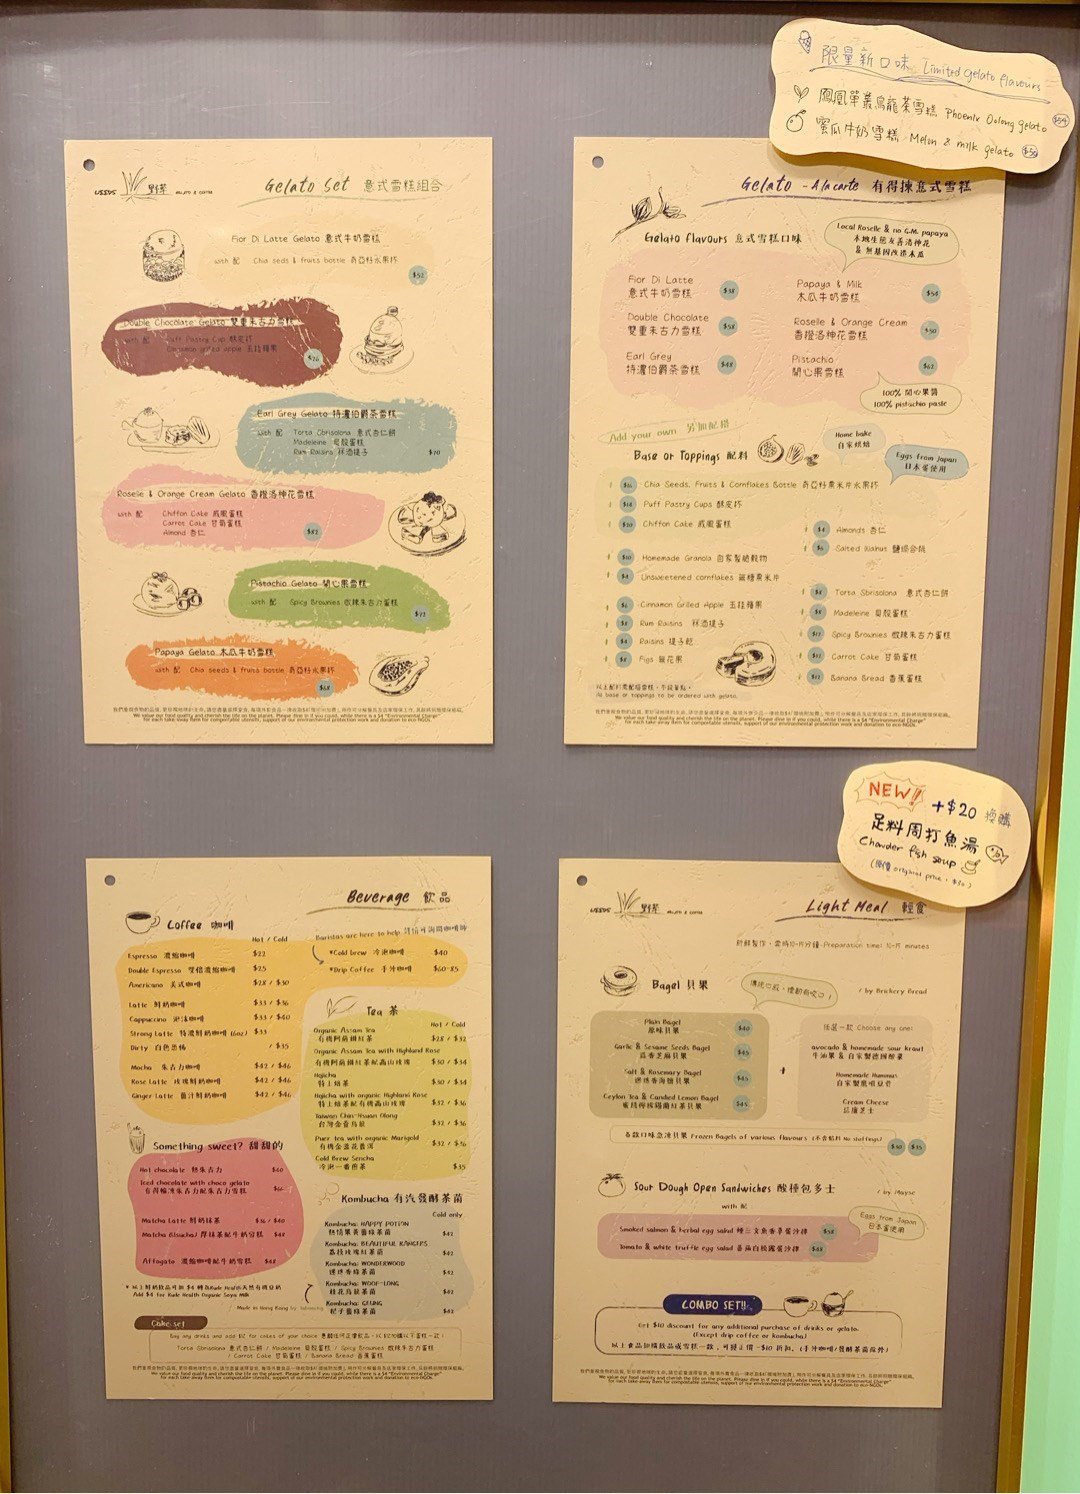 限量新口味 Limited gelato flavours
鳳凰單叢烏龍茶雪糕 Phoenix Oolong gelato $54
蜜瓜牛奶雪糕 Melon & milk gelato $50
WEEDS 野草
Gelato Set 意式雪糕組合
Fior Di Latte Gelato 意式牛奶雪糕
with 配 Chia seds & fruits bottle 奇亞籽水果杯
$52
Double Chocolate Gelato 雙重朱古力雪糕
with 配 Puff Pastry Cup 酥皮杯
Cinnamon grilled apple 五桂蘋果
$76
Earl Grey Gelato 特濃伯爵茶雪糕
with 配 Torta Sbrisolona 意式杏仁餅
Madeleine 貝殼蛋糕
Rum Raisins 冧酒提子
$70
Roselle & Orange Cream Gelato 香橙洛神花雪糕
with 配 Chiffon Cake 戚風蛋糕
Carrot Cake 甘筍蛋糕
Almond 杏仁
$82
Pistachio Gelato 開心果雪糕
with 配 Spicy Brownies 微辣朱古力蛋糕
$72
Papaya Gelato 木瓜牛奶雪糕
with 配 Chia seeds & fruits bottle 奇亞籽水果杯
$68
We value our food quality and cherish the life on the planet. Please dine in if you could, while there is a $4 "Environmental Charge"
for each take-away item for compostable utensils, support of our environmental protection work and donation to eco-NGOs.
Gelato - A la carte 有得揀意式雪糕
Gelato flavours 意式雪糕口味
Local Roselle & no G.M. papaya
本地生態友善洛神花
& 無基因改造木瓜
Fior Di Latte
意式牛奶雪糕
$38
Papaya & Milk
木瓜牛奶雪糕
$54
Double Chocolate
雙重朱古力雪糕
$58
Roselle & Orange Cream
香橙洛神花雪糕
$50
Earl Grey
特濃伯爵茶雪糕
$48
Pistachio
開心果雪糕
$62
100% 開心果醬
100% pistachio paste
Add your own 另加配搭
Base or Toppings 配料
Home bake
自家烘焙
Eggs from Japan
日本蛋使用
$16 Chia Seeds, Fruits & Cornflakes Bottle 奇亞籽粟米片水果杯
$18 Puff Pastry Cups 酥皮杯
$20 Chiffon Cake 戚風蛋糕
$10 Homemade Granola 自家製脆穀物
$4 Unsweetened cornflakes 無糖粟米片
$6 Cinnamon Grilled Apple 五桂蘋果
$8 Rum Raisins 冧酒提子
$4 Raisins 提子乾
$8 Figs 無花果
$4 Almonds 杏仁
$6 Salted Walnut 鹽焗合桃
$8 Torta Sbrisolona 意式杏仁餅
$8 Madeleine 貝殼蛋糕
$12 Spicy Brownies 微辣朱古力蛋糕
$12 Carrot Cake 甘筍蛋糕
$12 Banana Bread 香蕉蛋糕
以上配料需配搭雪糕，不設單點。
All base or toppings to be ordered with gelato.
We value our food quality and cherish the life on the planet. Please dine in if you could, while there is a $4 "Environmental Charge"
for each take-away item for compostable utensils, support of our environmental protection work and donation to eco-NGOs.
NEW!! +$20 換購
足料周打魚湯
Chowder fish soup
(原價 original price : $30)
Beverage 飲品
Coffee 咖啡
Hot / Cold
Espresso 濃縮咖啡 $22
Double Espresso 雙倍濃縮咖啡 $25
Americano 美式咖啡 $28 / $30
Latte 鮮奶咖啡 $33 / $36
Cappuccino 泡沫咖啡 $33 / $40
Strong Latte 特濃鮮奶咖啡 (6oz) $33
Dirty / $35
Mocha 朱古力咖啡 $42 / $46
Rose Latte 玫瑰鮮奶咖啡 $42 / $46
Ginger Latte 薑汁鮮奶咖啡 $42 / $46
Baristas are here to help 詳情可詢問咖啡師
*Cold brew 冷泡咖啡 $40
*Drip Coffee 手沖咖啡 $60-85
Tea 茶
Hot / Cold
Organic Assam Tea
有機阿薩姆紅茶 $28 / $32
Organic Assam Tea with Highland Rose
有機阿薩姆紅茶配高山玫瑰 $30 / $34
Hojicha
特上焙茶 $30 / $34
Hojicha with organic Highland Rose
特上焙茶配有機高山玫瑰 $32 / $36
Taiwan Chin-Hsuan Olong
台灣金萱烏龍 $32 / $36
Puer tea with organic Marigold
有機金盞花普洱 $32 / $36
Cold Brew Sencha
冷泡一番煎茶 $35
Something sweet? 甜甜的
Hot chocolate 熱朱古力 $40
Iced chocolate with choco gelato
Matcha Latte 鮮奶抹茶 $36 / $40
Matcha (Usucha) 厚抹茶配牛奶雪糕 $48
Affogato 濃縮咖啡配牛奶雪糕 $48
Add $4 for Rude Health Organic Soya Milk
Kombucha 有汽發酵茶菌
Cold only
Kombucha: HAPPY POTION
熱情果黃薑綠茶菌 $42
Kombucha: BEAUTIFUL RANGERS
荔枝玫瑰紅茶菌 $42
Kombucha: WONDERWOOD
迷迭香綠茶菌 $42
Kombucha: WOOF-LONG
桂花烏龍茶菌 $42
Kombucha: GEUNG
杞子薑綠茶菌 $42
Made in Hong Kong by Taboocha
Cake set
Torta Sbrisolona 意式杏仁餅 / Madeleine 貝殼蛋糕 / Spicy Brownies 微辣朱古力蛋糕
/ Carrot Cake 甘筍蛋糕 / Banana Bread 香蕉蛋糕
We value our food quality and cherish the life on the planet. Please dine in if you could, while there is a $4 "Environmental Charge"
for each take-away item for compostable utensils, support of our environmental protection work and donation to eco-NGOs.
WEEDS 野草
Light Meal 輕食
新鮮製作，需時10-15分鐘 Preparation time: 10-15 minutes
Bagel 貝果
/ by Brickery Bread
Plain Bagel
原味貝果 $40
Garlic & Sesame Seeds Bagel
蒜香芝麻貝果 $45
Salt & Rosemary Bagel
迷迭香海鹽貝果 $45
Ceylon Tea & Candied Lemon Bagel
蜜漬檸檬錫蘭紅茶貝果 $45
+
任選一款 Choose any one:
avocado & homemade sour kraut
牛油果 & 自家製德國酸菜
Homemade Hummus
自家製鷹嘴豆蓉
Cream Cheese
忌廉芝士
各款口味急凍貝果 Frozen Bagels of various flavours (不含餡料 No stuffings)
$30 $35
Sour Dough Open Sandwiches 酸種包多士
/ by Mayse
with 配
Eggs from Japan
日本蛋使用
Smoked salmon & herbal egg salad 煙三文魚香草蛋沙律 $58
Tomato & white truffle egg salad 番茄白松露蛋沙律 $48
COMBO SET!!
Get $10 discount for any additional purchase of drinks or gelato.
(Except drip coffee or kombucha)
We value our food quality and cherish the life on the planet. Please dine in if you could, while there is a $4 "Environmental Charge"
for each take-away item for compostable utensils, support of our environmental protection work and donation to eco-NGOs.